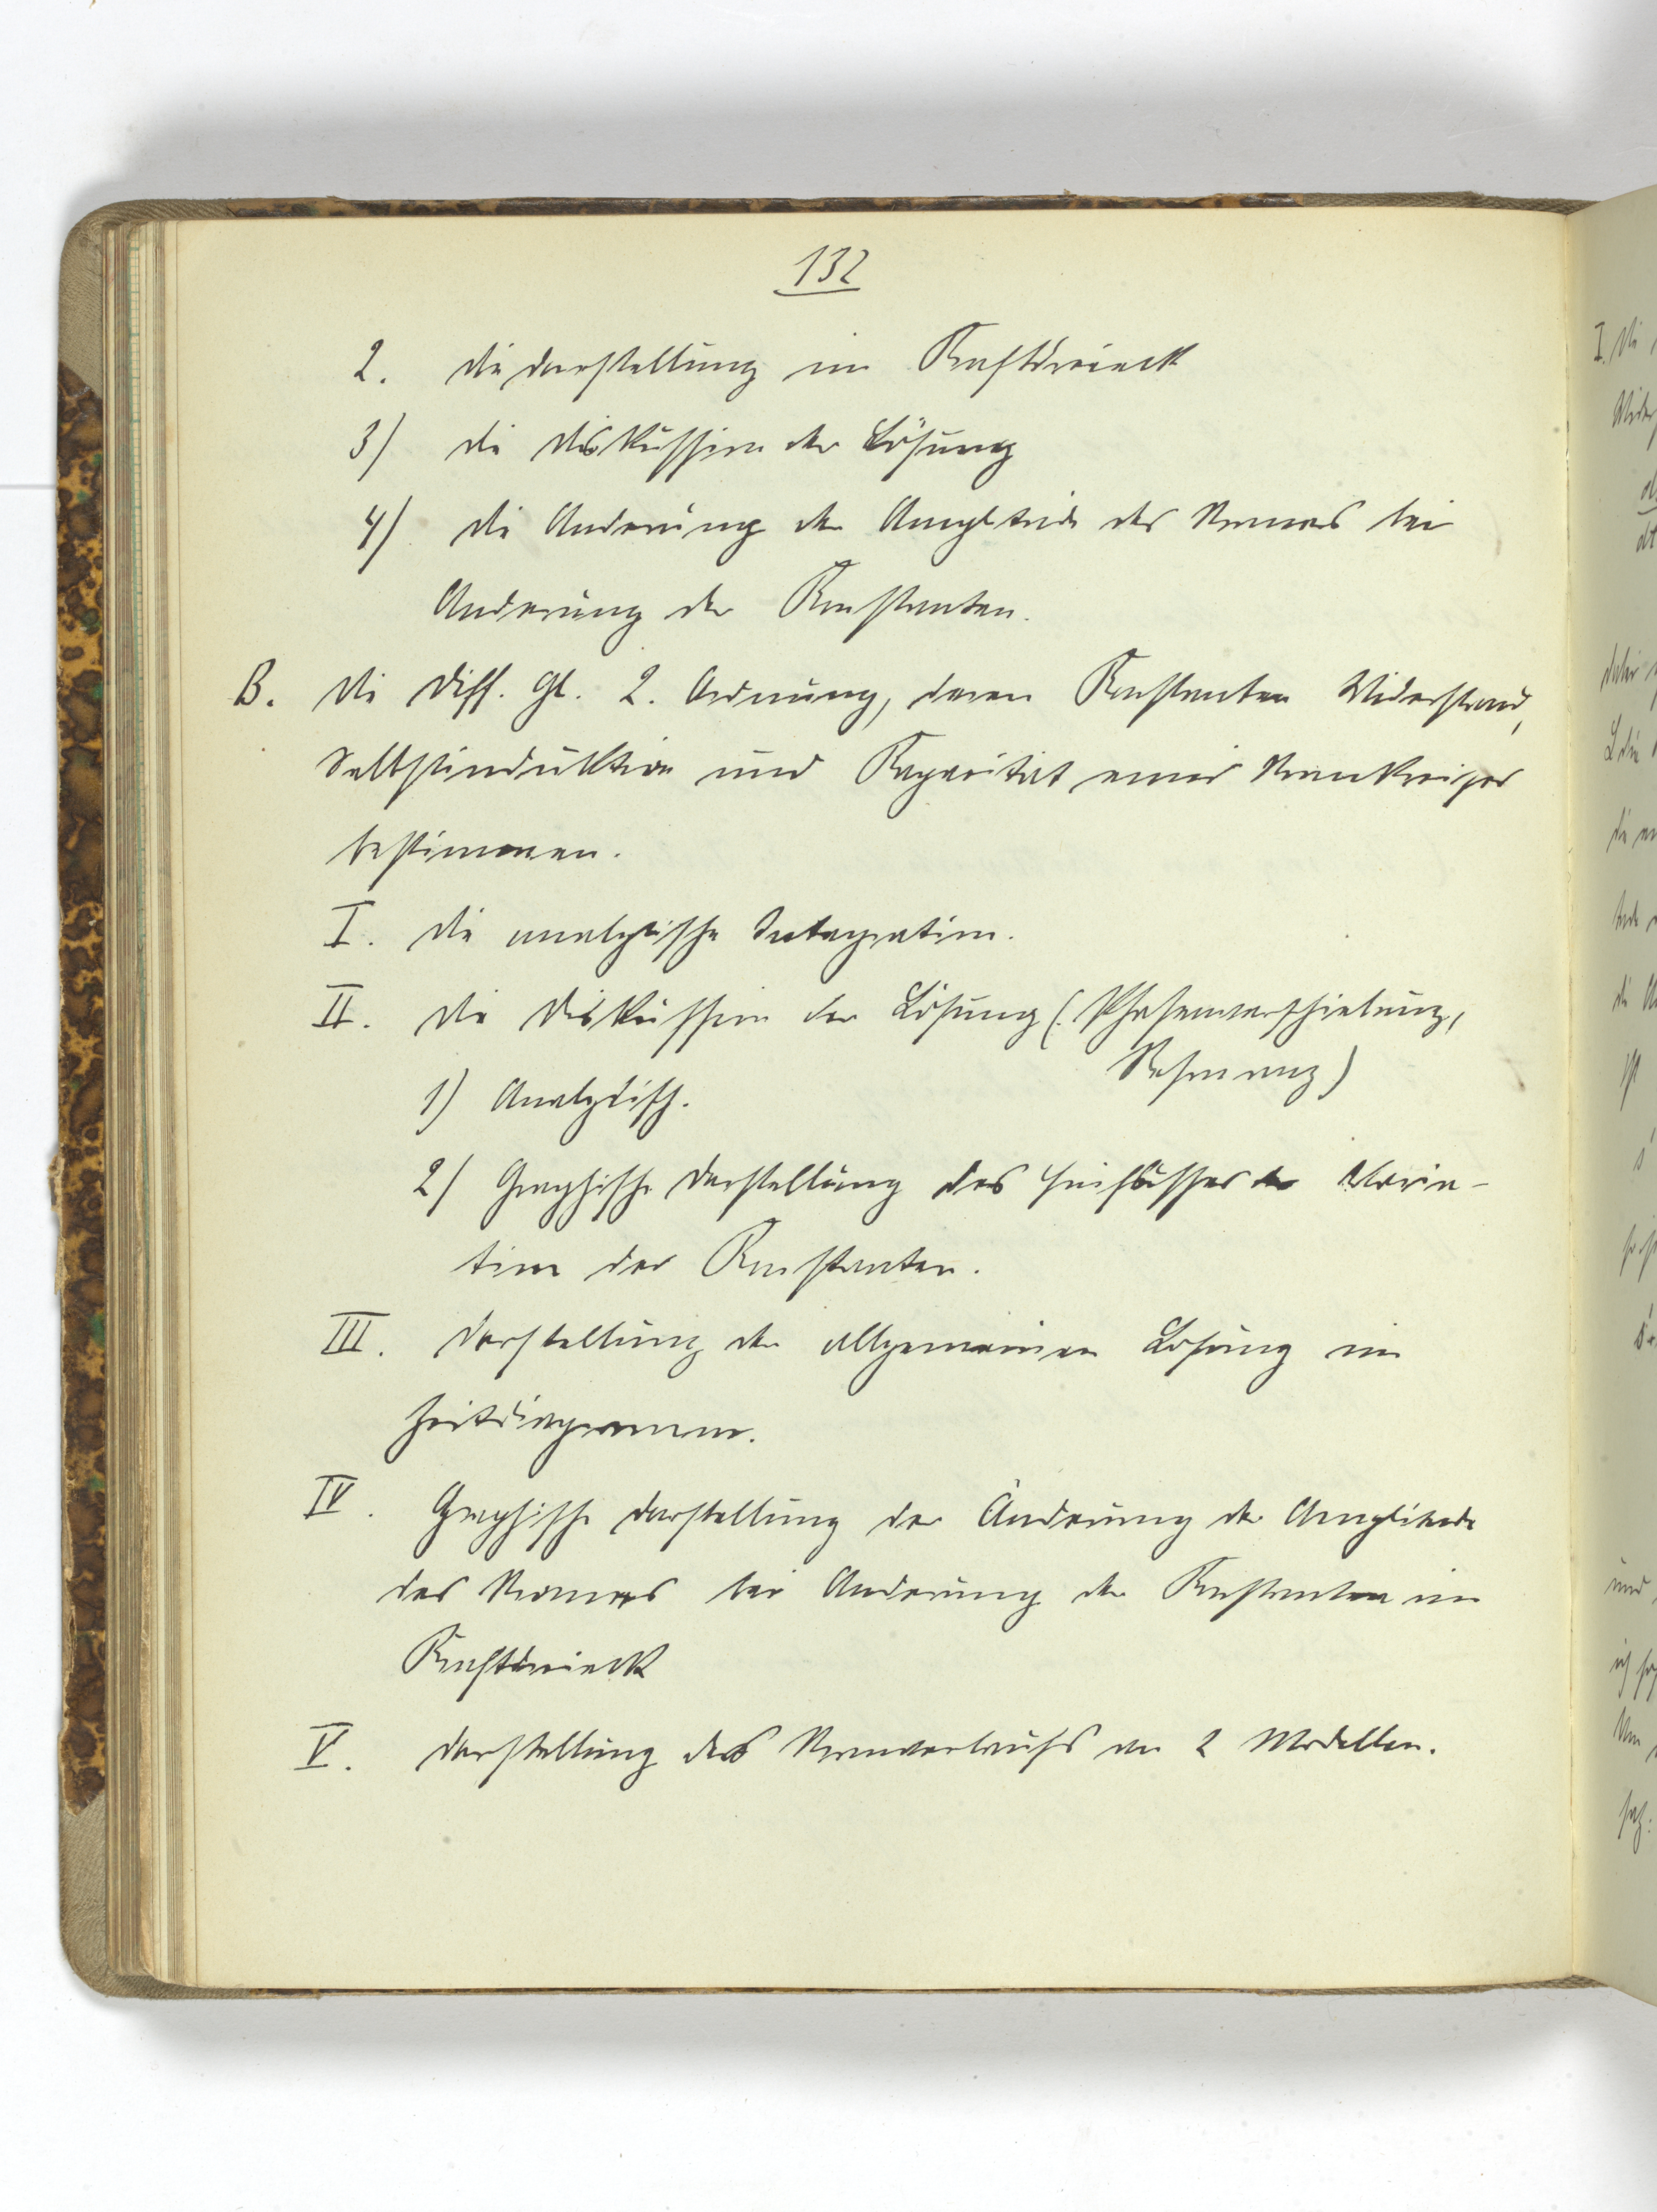 132
2. die Darstellung im Kraftdreieck
3) die Diskussion der Lösung
4) die Anderung der Amplitude des Stromes bei
Anderung der Konstanten.
B. Die Diff. Gl. 2. Ordnung, deren Konstanten Widerstand,
Selbstinduktion und Kapacität eines Stromkreises
bestimmen.
I. Die analytische Integration.
II. Die Diskussion der Lösung (Phasenverschiebung,
Resonanz)
1) Analytisch.
2) Graphische Darstellung des Einflusses der Varia-
tion der Konstanten.
III. Darstellung der allgemeinen Lösung im
Zeitdiagramm.
IV. Graphische Darstellung der Änderung der Amplitude
des Stromes bei Anderung der Konstanten im
Kraftdreieck
V. Darstellung des Stromverlaufs an 2 Modellen.